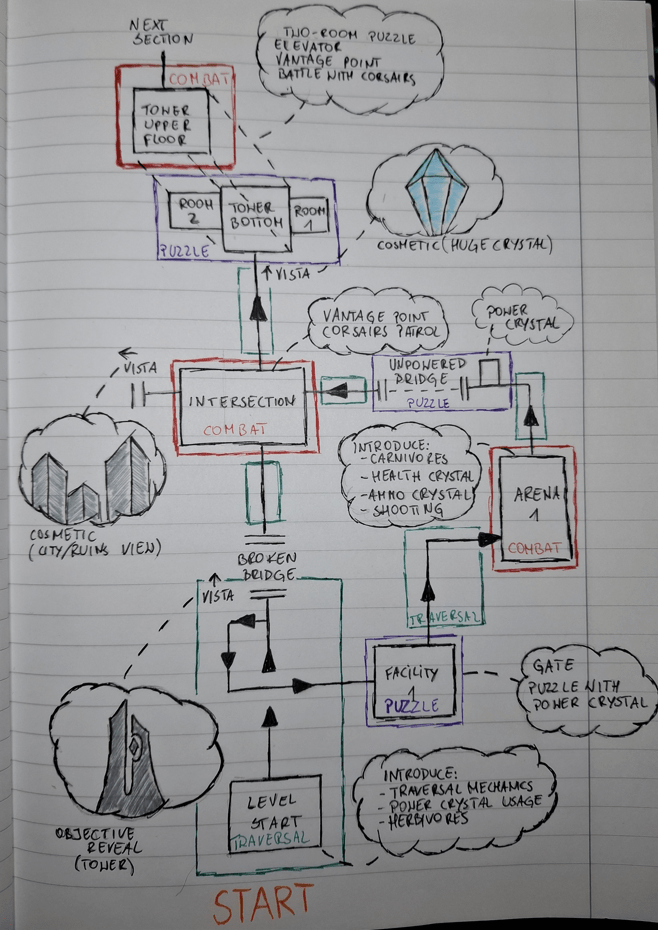 NEXT
SECTION
TWO-ROOM PUZZLE
ELEVATOR
VANTAGE POINT
BATTLE WITH CORSAIRS
COMBAT
TOWER
UPPER
FLOOR
ROOM
2
TOWER
BOTTOM
ROOM
1
PUZZLE
COSMETIC (HUGE CRYSTAL)
VISTA
VANTAGE POINT
CORSAIRS PATROL
POWER
CRYSTAL
VISTA
UNPOWERED
BRIDGE
PUZZLE
INTERSECTION
COMBAT
INTRODUCE:
- CARNIVORES
- HEALTH CRYSTAL
- AMMO CRYSTAL
- SHOOTING
ARENA
1
COMBAT
COSMETIC
(CITY/RUINS VIEW)
BROKEN
BRIDGE
VISTA
TRAVERSAL
FACILITY
1
PUZZLE
GATE
PUZZLE WITH
POWER CRYSTAL
OBJECTIVE
REVEAL
(TOWER)
LEVEL
START
TRAVERSAL
INTRODUCE:
- TRAVERSAL MECHANICS
- POWER CRYSTAL USAGE
- HERBIVORES
START